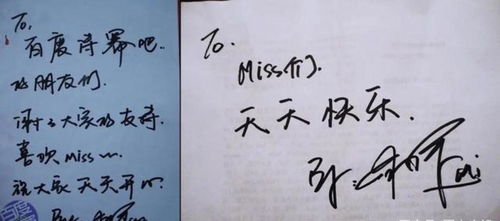 To,
百度诗幂吧.
的朋友们.
谢谢大家的支持.
喜欢miss
祝大家天天开心.
By
百度
To.
Miss们.
天天快乐.
By